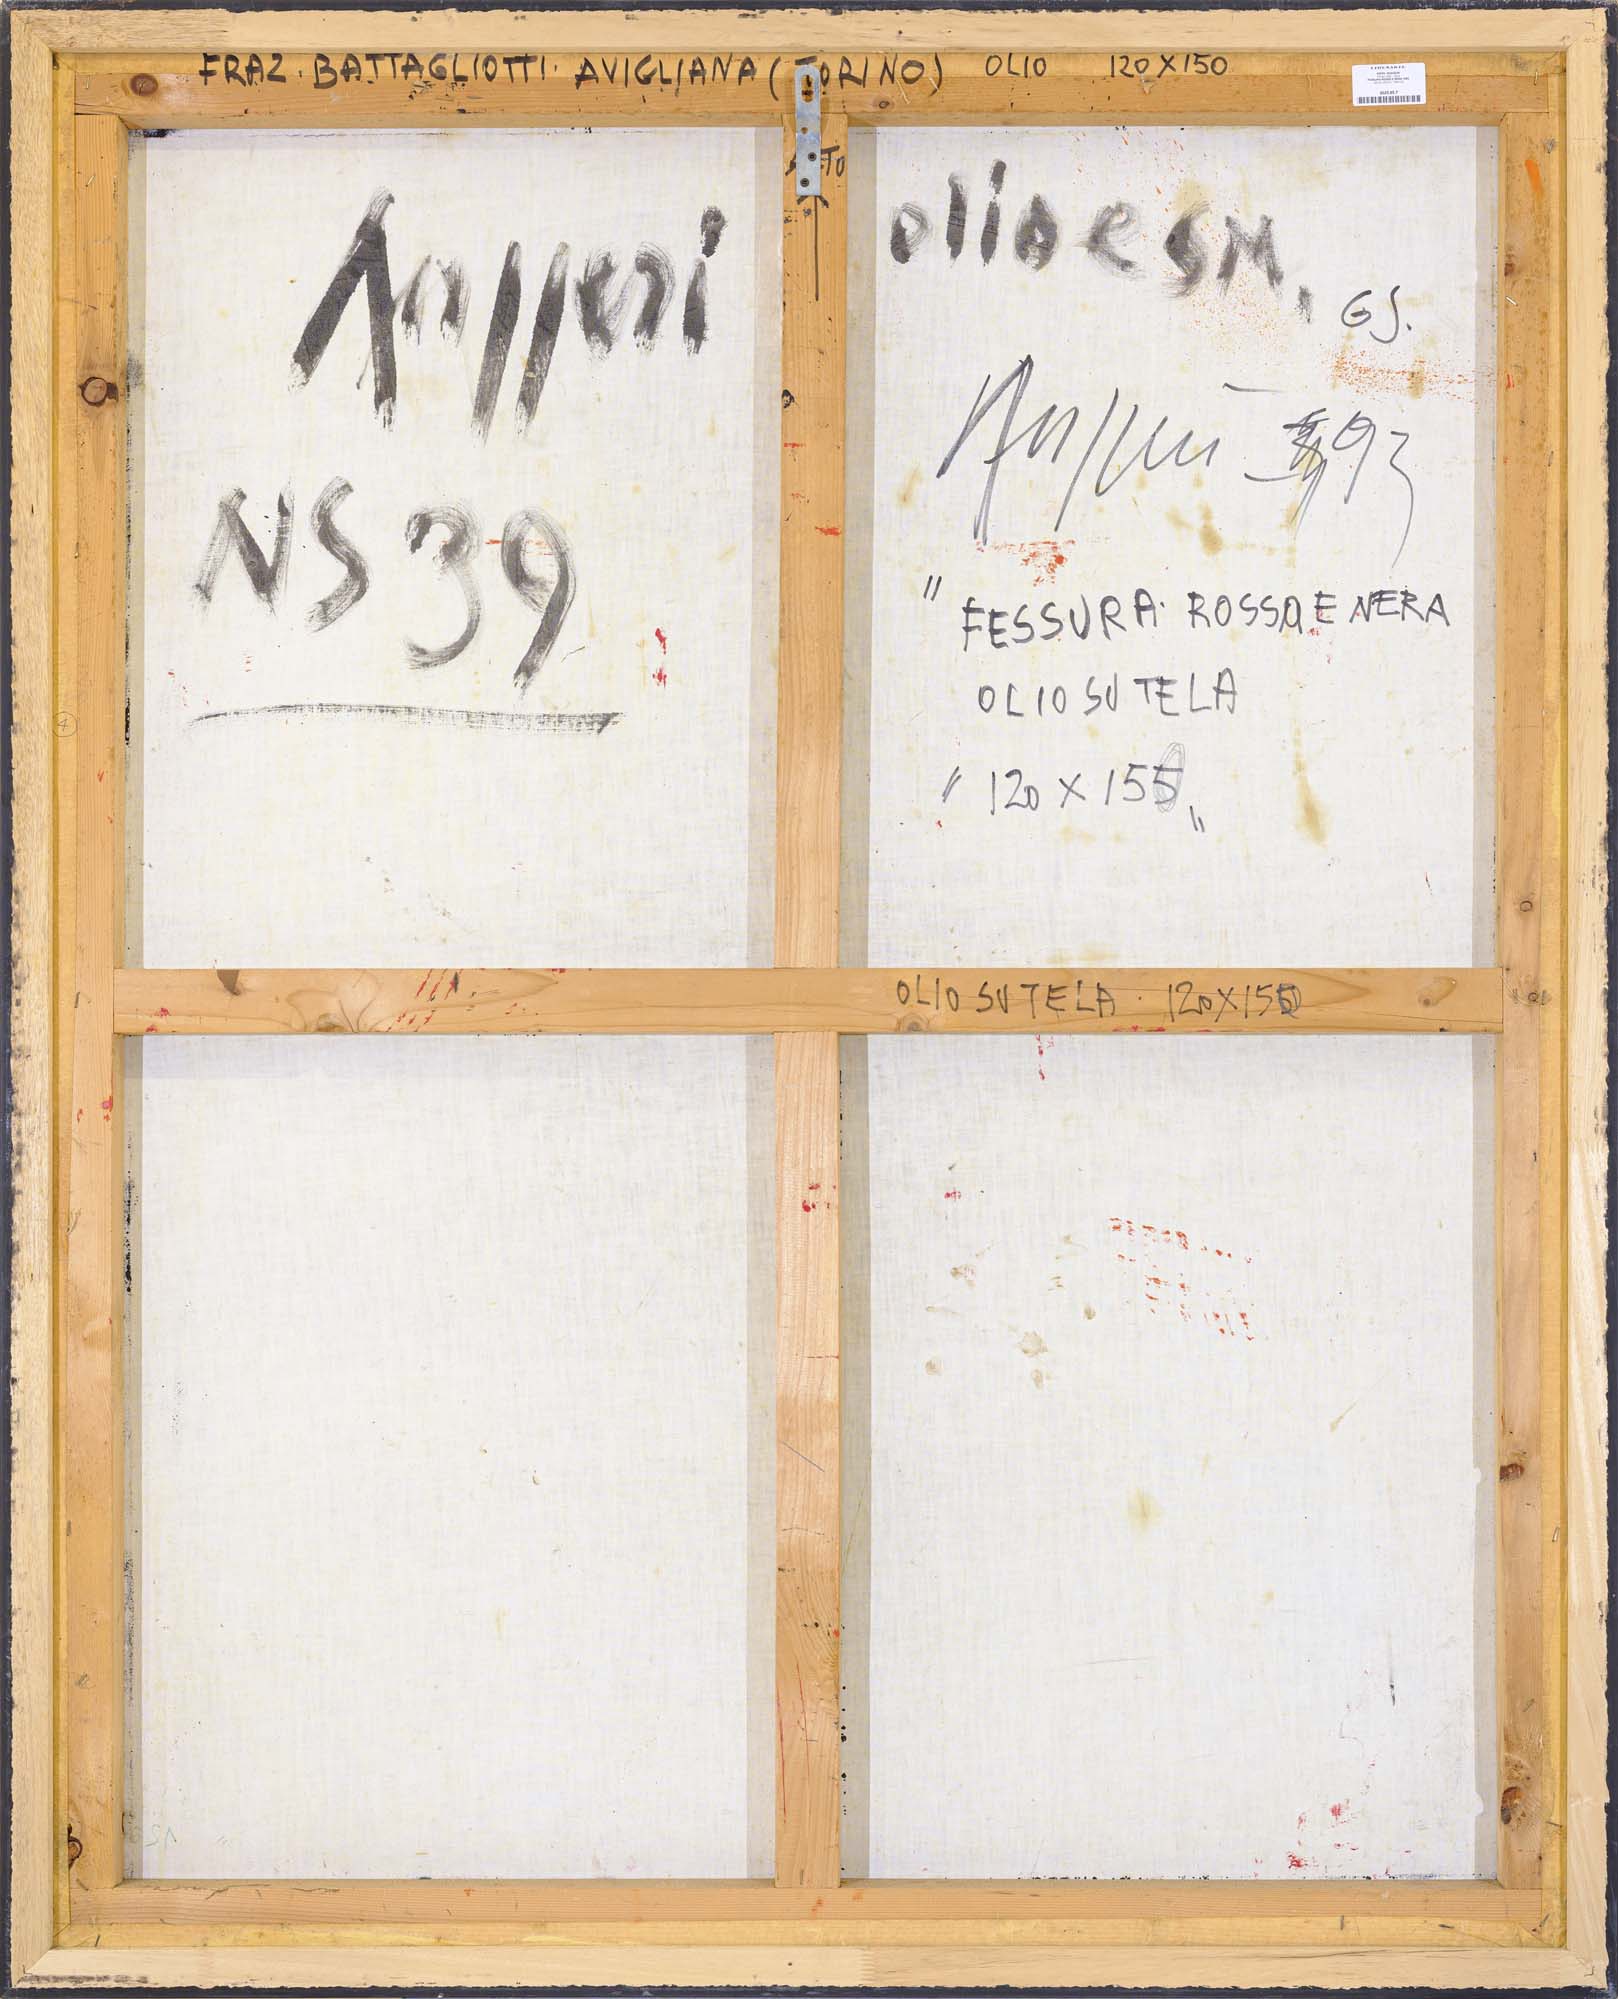 FRAZ. BATTAGLIOTTI. AVIGLIANA (TORINO) OLIO 120 X 150
NS 39
olio e SM.
GJ.
93
" FESSURA. ROSSA E NERA
OLIO SU TELA
" 120 X 155 "
OLIO SU TELA. 120X150